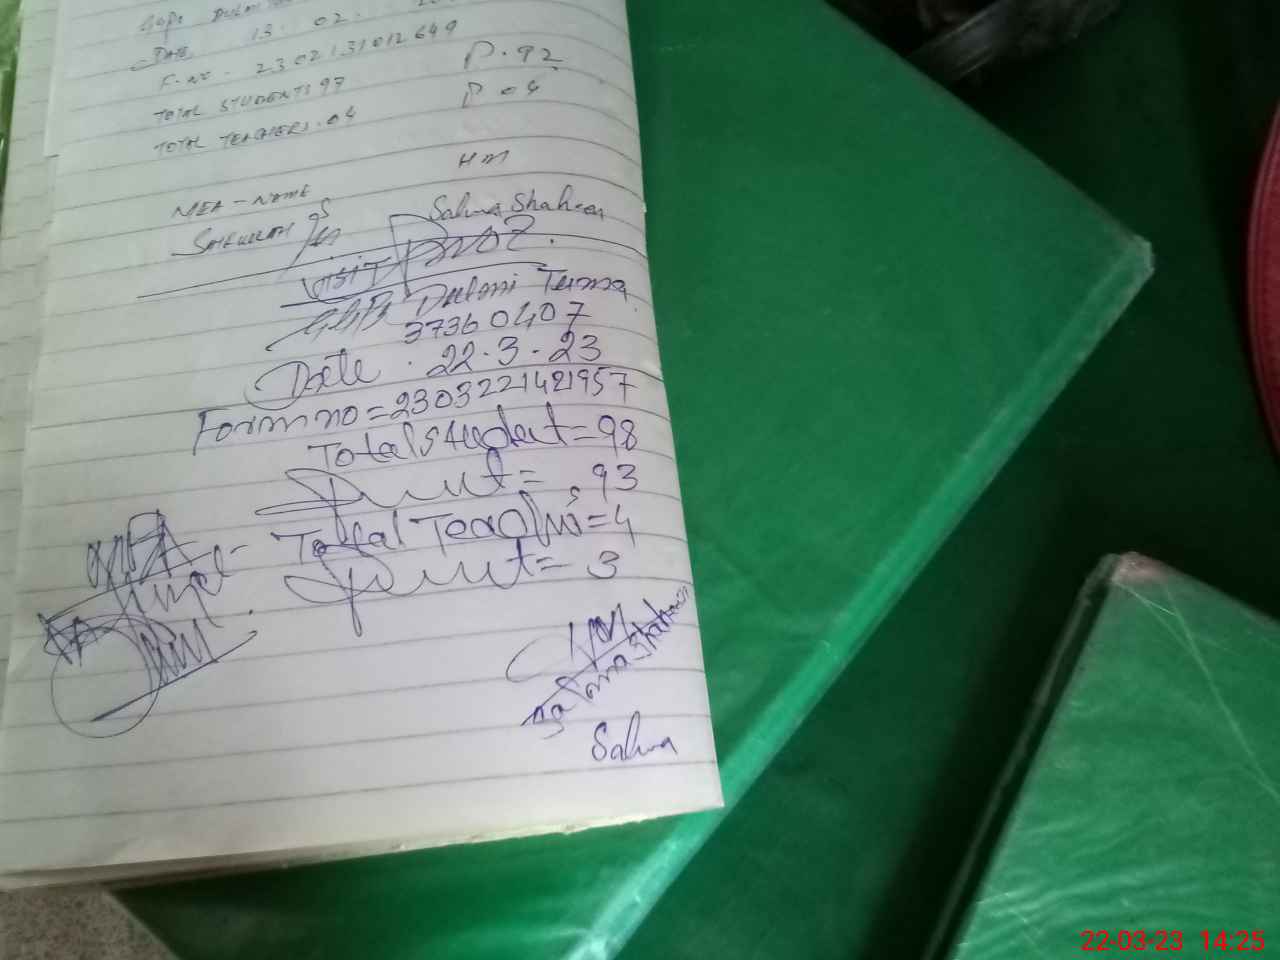 DATE 13.02.
F.NO. 2302131012649
TOTAL STUDENTS 97 P.92
TOTAL TEACHERS.04 P 04
MEA-NAME HM
Salma Shaheen
VISIT
GGPS Dulmi Turna
37360407
Date. 22.3.23
Form no=2303221421957
Total student=98
Present= 93
Total Teachers=4
Present= 3
Salma Shaheen
Salma
22-03-23 14:25